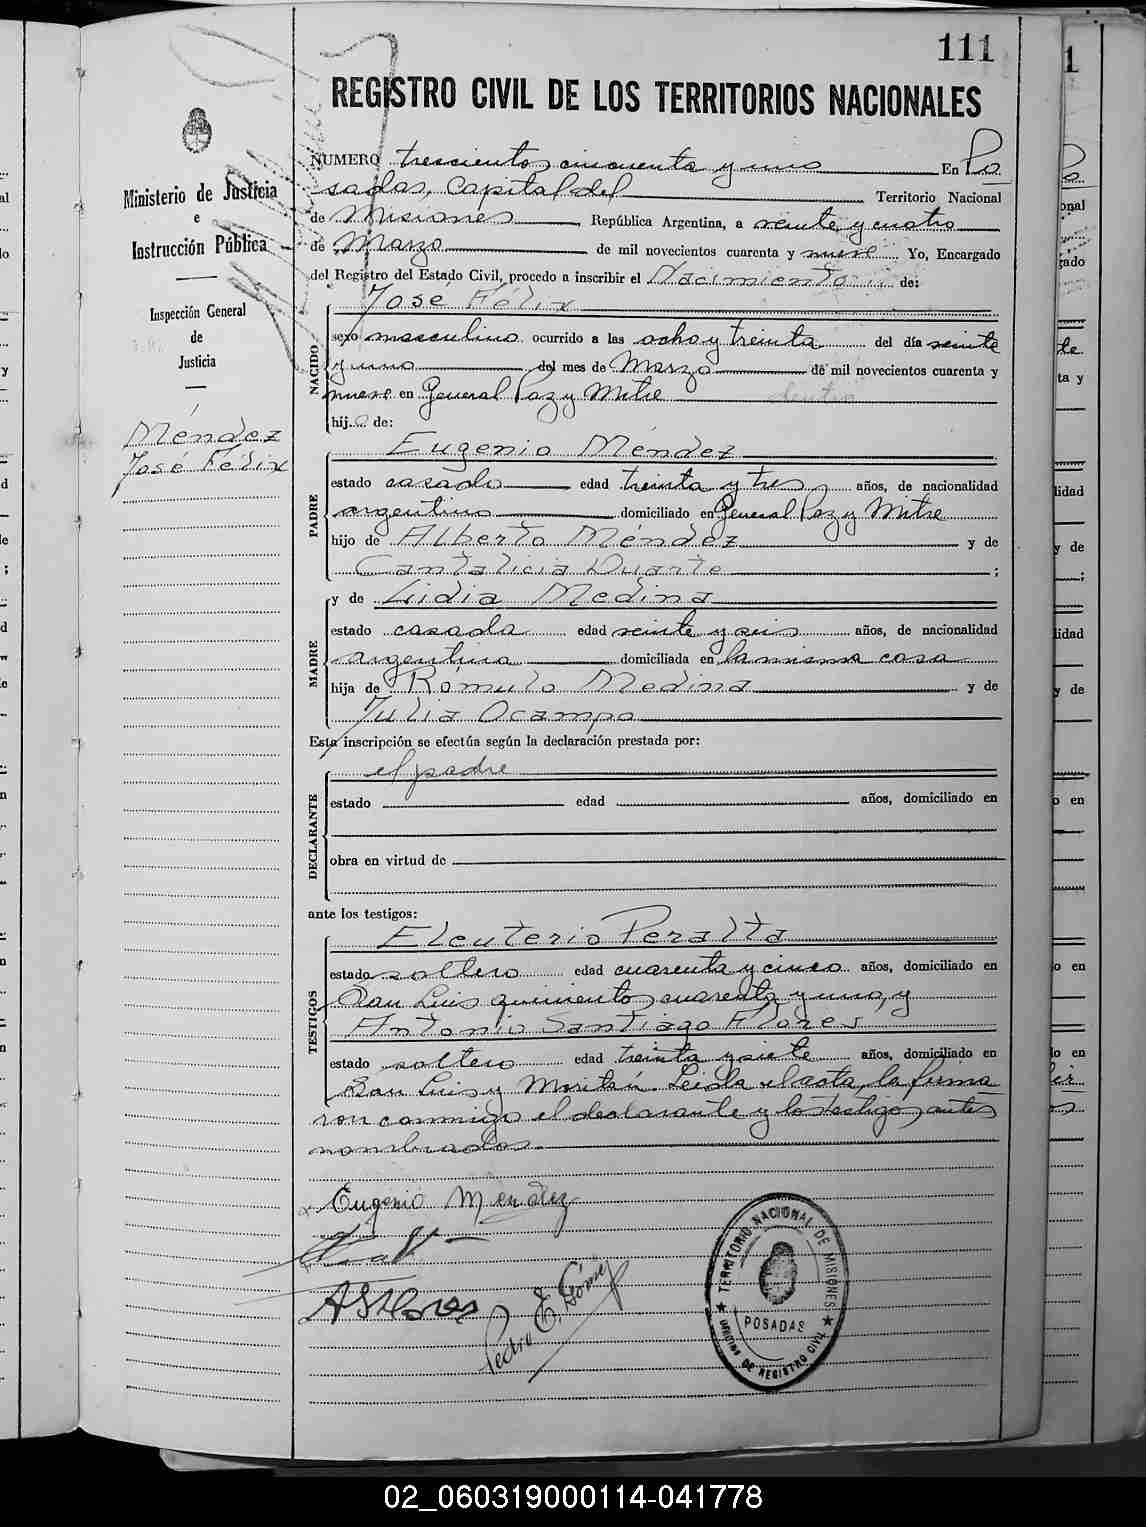 111
REGISTRO CIVIL DE LOS TERRITORIOS NACIONALES
Ministerio de Justicia
e
Instrucción Pública
Inspección General
de
Justicia
Méndez
José Félix
NUMERO trescientos cincuenta y uno En Po
sadas, Capital del Territorio Nacional
de Misiones República Argentina, a veinte y cuatro
de Marzo de mil novecientos cuarenta y nueve Yo, Encargado
del Registro del Estado Civil, procedo a inscribir el Nacimiento de:
NACIDO
José Félix
sexo masculino ocurrido a las ocho y treinta del día veinte
y uno del mes de Marzo de mil novecientos cuarenta y
nueve en General Paz y Mitre
hij.o de:
PADRE
Eugenio Méndez
estado casado edad treinta y tres años, de nacionalidad
argentino domiciliado en General Paz y Mitre
hijo de Alberto Méndez y de
Cantalicia Duarte ;
MADRE
y de Lidia Medina
estado casada edad veinte y seis años, de nacionalidad
argentina domiciliada en la misma casa
hija de Rómulo Medina y de
Julia Ocampo
Esta inscripción se efectúa según la declaración prestada por:
DECLARANTE
el padre
estado edad años, domiciliado en
obra en virtud de
ante los testigos:
TESTIGOS
Eleuterio Peralta
estado soltero edad cuarenta y cinco años, domiciliado en
San Luis quinientos cuarenta y uno, y
Antonio Santiago Flores
estado soltero edad treinta y siete años, domiciliado en
San Luis y Moritán. Leída el acta, la firma
ron conmigo el declarante y los testigos antes
nombrados.
Eugenio Méndez
ASFlores
Pedro E. Gómez
TERRITORIO NACIONAL DE MISIONES
POSADAS
OFICINA DE REGISTRO CIVIL
02_060319000114-041778